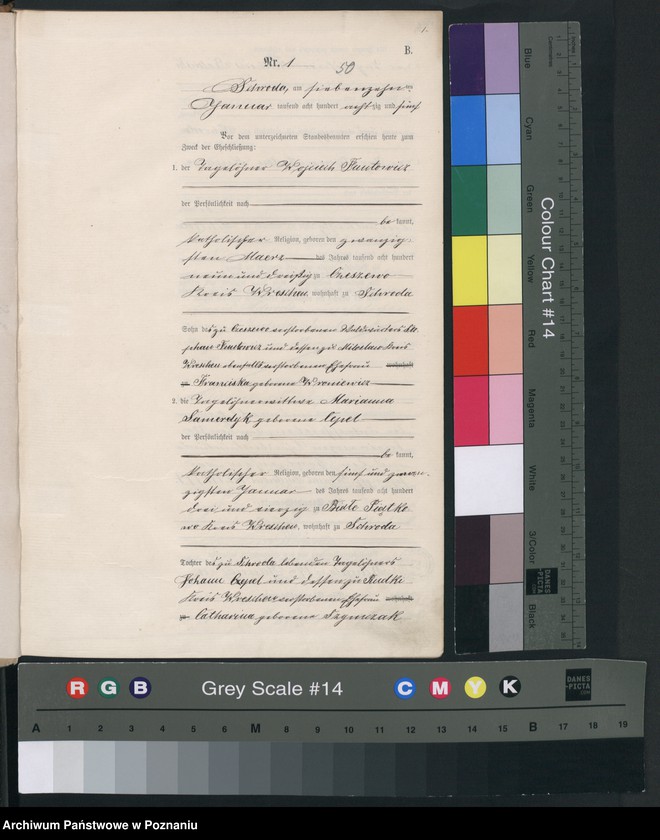 1.
B.
Nr. 1
50
Schroda, am siebenzehn ten
Januar tausend acht hundert achtzig und fünf
Vor dem unterzeichneten Standesbeamten erschien heute zum
Zweck der Eheschließung:
1. der Tagelöhner Wojciech Fautowicz
der Persönlichkeit nach
be kannt,
katholischer Religion, geboren den zwanzig-
sten Maerz des Jahres tausend acht hundert
neun und dreißig zu
Kreis Wreschen, wohnhaft zu Schroda
Sohn des zu verstorbenen
und dessen zu Miloslaw Kreis
Wreschen ebenfalls verstorbenen Ehefrau wohnhaft
zu Franciska geborene
2. die Tagelöhnerwittwe Marianna
geborene
der Persönlichkeit nach
be kannt,
katholischer Religion, geboren den fünf und zwan-
zigsten Januar des Jahres tausend acht hundert
drei und vierzig zu
wo Kreis Wreschen, wohnhaft zu Schroda
Tochter des zu Schroda lebenden Tagelöhners
Johann und dessen zu
Kreis Wreschen verstorbenen Ehefrau wohnhaft
zu Catharina geborene Szymczak
Colour Chart #14
Blue
Cyan
Green
Yellow
Red
Magenta
White
3/Color
Black
Centimetres
Inches
DANES
-PICTA
.COM
R G B
Grey Scale #14
C M Y K
DANES
-PICTA
.COM
A 1 2 3 4 5 6 M 8 9 10 11 12 13 14 15 B 17 18 19
Archiwum Państwowe w Poznaniu